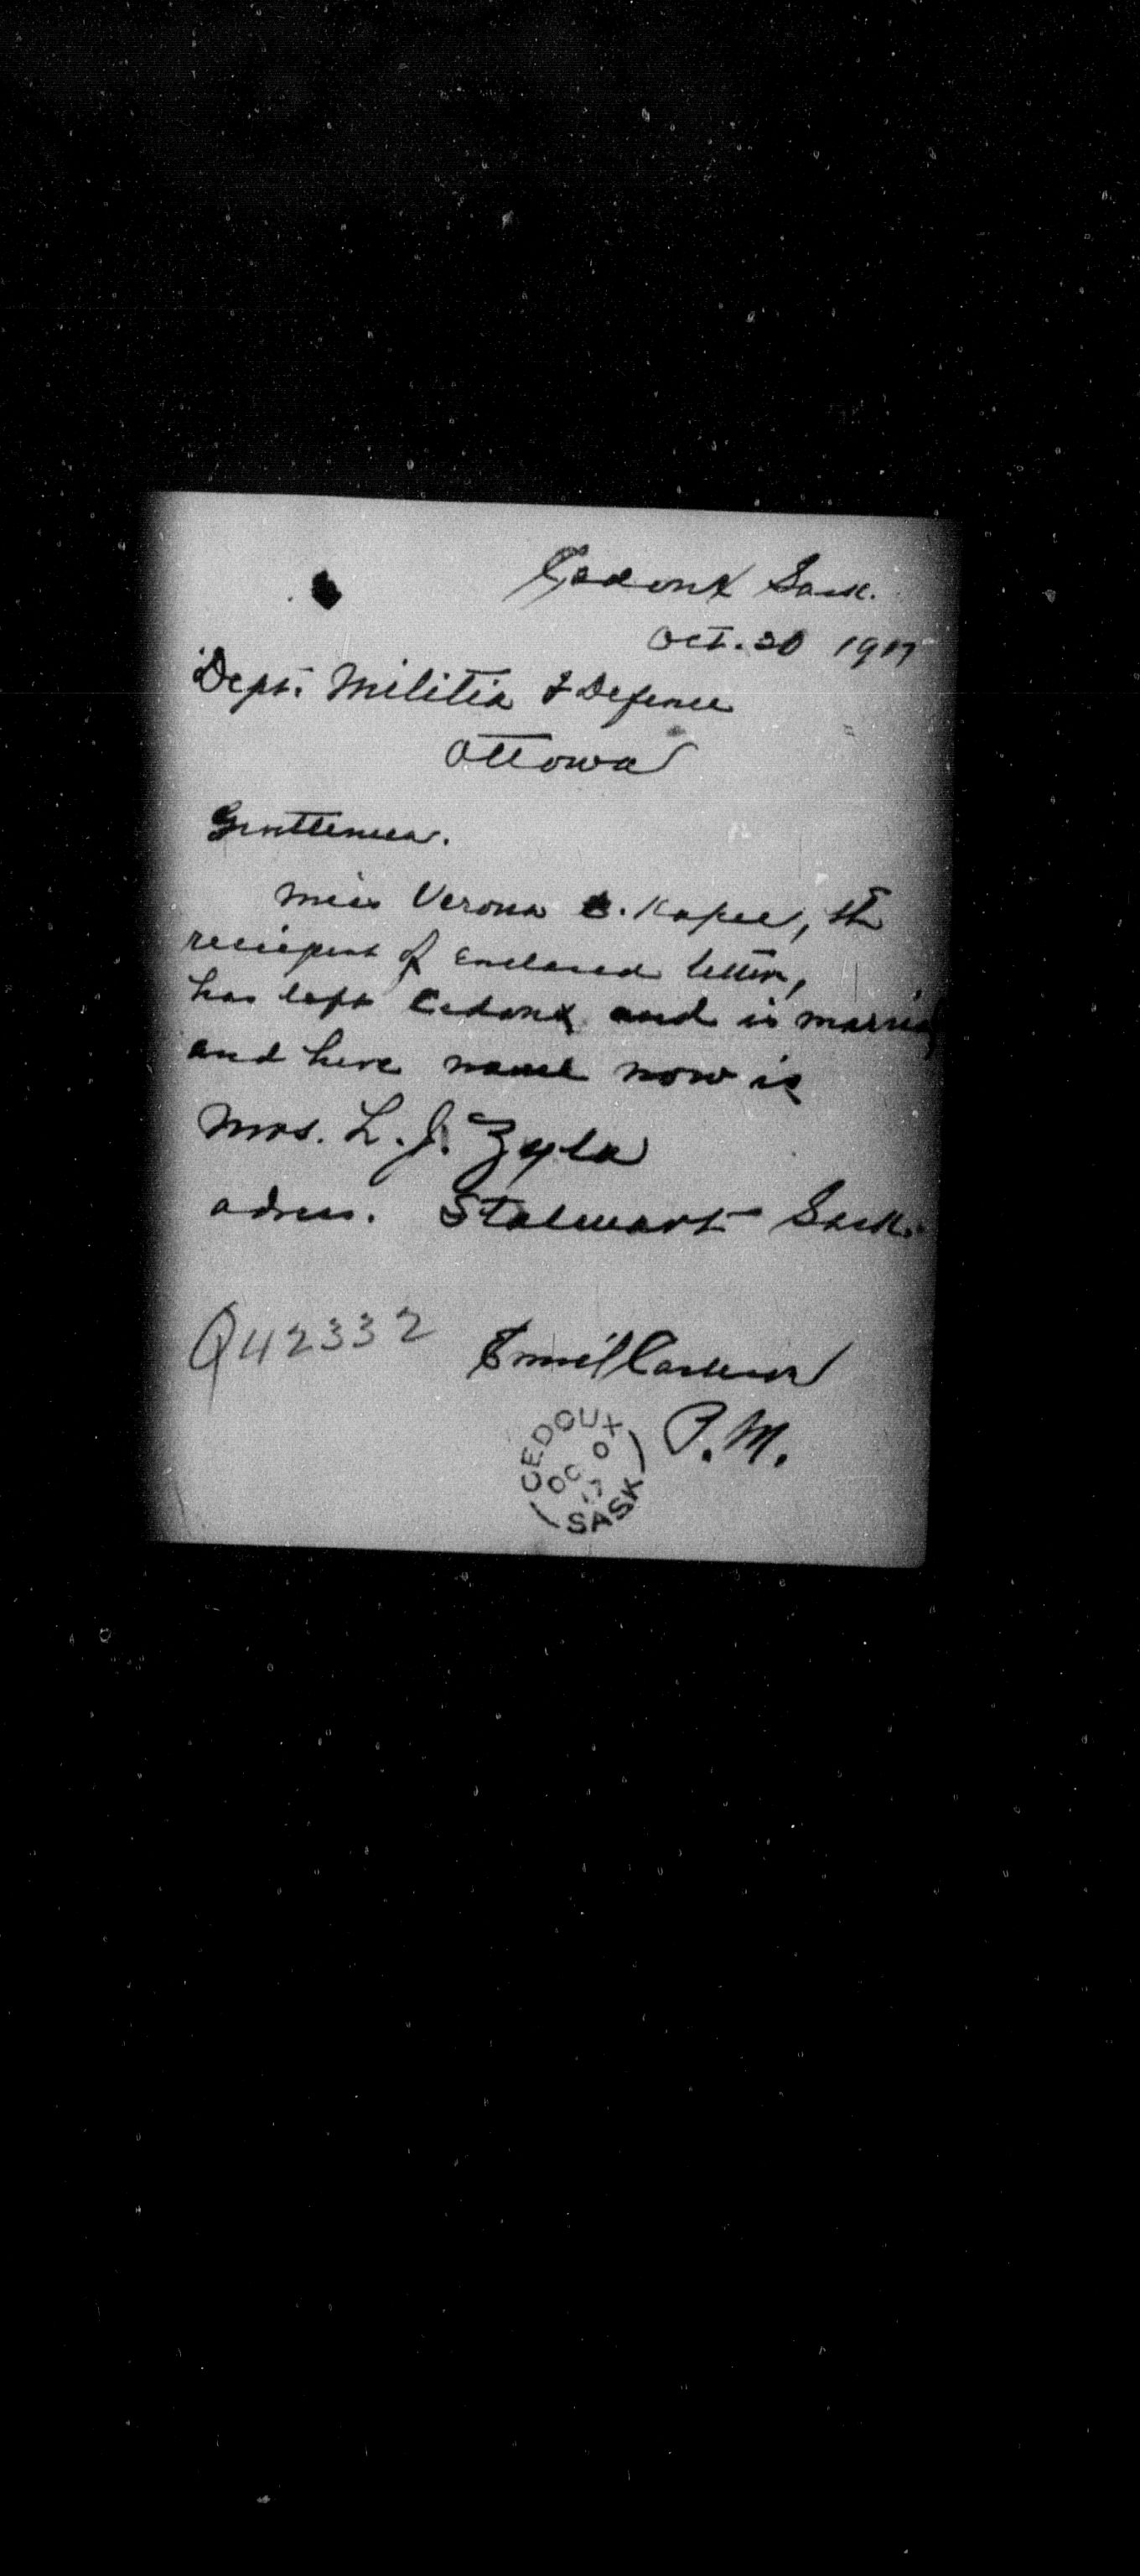 Cedoux Sask.
Oct. 20 1917
Dept. Militia & Defence
Ottowa
Gentlemen.
Miss Verona B. Kapel, the
reciepent of enclosed letter,
has left Cedoux and is married
and here name now is
Mrs. L. J. Zyla
adress. Stalwart Sask.
Q42332 Emil
P.M.
CEDOUX
OC 0
17
SASK